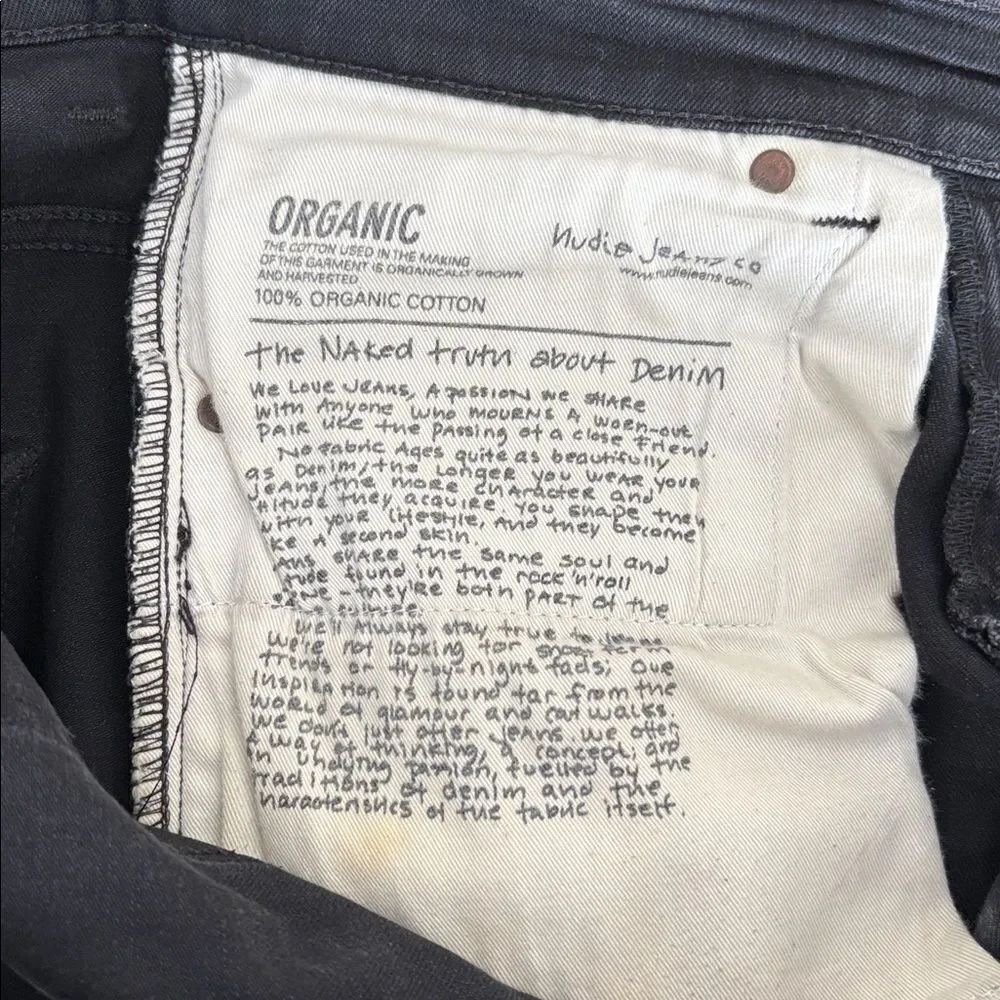 ORGANIC
THE COTTON USED IN THE MAKING
OF THIS GARMENT IS ORGANICALLY GROWN
AND HARVESTED
100% ORGANIC COTTON
Nudie Jeans co
www.nudiejeans.com
The Naked truth about Denim
We Love Jeans, A passion we share
with Anyone who mourns A worn-out
pair like the passing of a close friend.
No fabric Ages quite as beautifully
as Denim, the Longer you wear your
Jeans, the more character and
titude they acquire. You shape they
with your lifestyle, And they become
ke A second skin.
ans share the same soul and
tude found in the rock'n'roll
they're both part of the
We'll Always stay true to
We're not looking for short term
trends or fly-by-night fads; Our
Inspiration is found far from the
world of glamour and catwalks
We Don't just offer jeans, we offer
A way of thinking, a concept, and
n undying passion, fuelled by the
raditions of denim and the
haracteristics of the fabric itself.